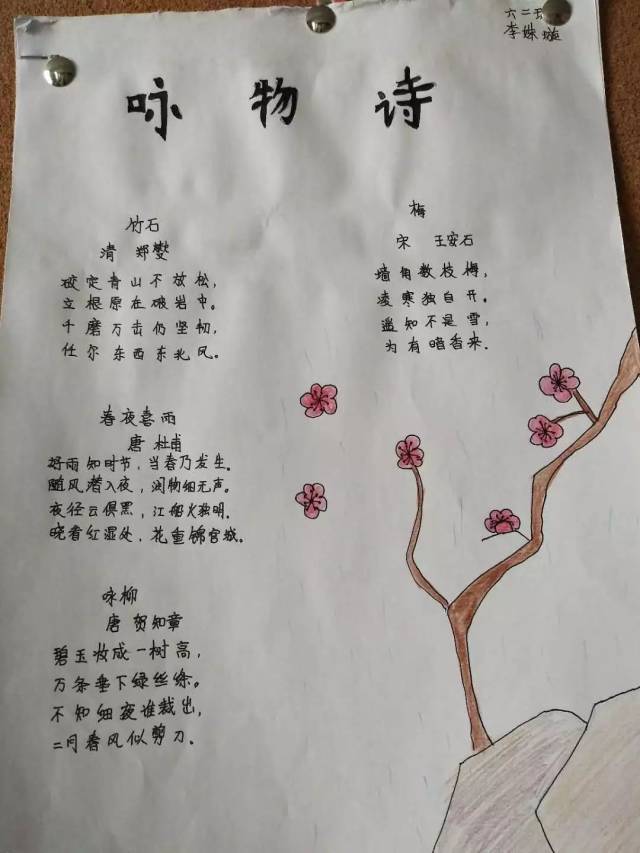 六二
李姝璇
咏物诗
竹石
清 郑燮
咬定青山不放松，
立根原在破岩中。
千磨万击仍坚韧，
任尔东西东北风。
梅
宋 王安石
墙角数枝梅，
凌寒独自开。
遥知不是雪，
为有暗香来.
春夜喜雨
唐 杜甫
好雨知时节，当春乃发生。
随风潜入夜，润物细无声。
夜径云俱黑，江船火独明。
晓看红湿处，花重锦宫城。
咏柳
唐 贺知章
碧玉妆成一树高，
万条垂下绿丝绦。
不知细夜谁裁出，
二月春风似剪刀.